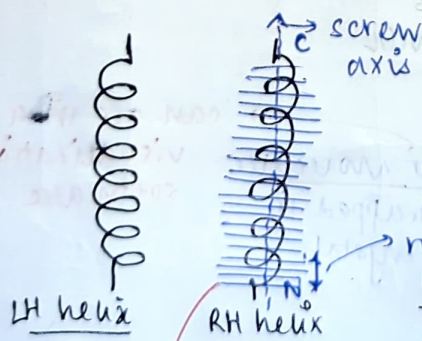 screw
C
axis
N
LH helix
RH helix